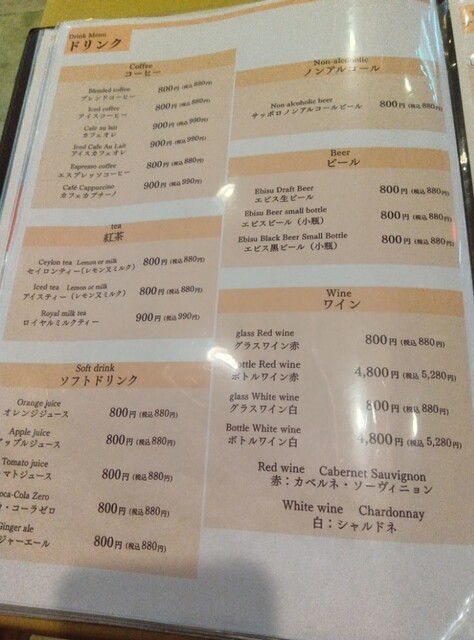 Drink Menu
ドリンク
Coffee
コーヒー
Blended coffee
ブレンドコーヒー 800円(税込880円)
Iced coffee
アイスコーヒー 800円(税込880円)
Cafe au lait
カフェオレ 900円(税込990円)
Iced Cafe Au Lait
アイスカフェオレ 900円(税込990円)
Espresso coffee
エスプレッソコーヒー 800円(税込880円)
Café Cappuccino
カフェカプチーノ 900円(税込990円)
tea
紅茶
Ceylon tea Lemon or milk
セイロンティー(レモン又ミルク) 800円(税込880円)
Iced tea Lemon or milk
アイスティー(レモン又ミルク) 800円(税込880円)
Royal milk tea
ロイヤルミルクティー 900円(税込990円)
Soft drink
ソフトドリンク
Orange juice
オレンジジュース 800円(税込880円)
Apple juice
アップルジュース 800円(税込880円)
Tomato juice
マトジュース 800円(税込880円)
oca-Cola Zero
・コーラゼロ 800円(税込880円)
Ginger ale
ジャーエール 800円(税込880円)
Non-alcoholic
ノンアルコール
Non-alcoholic beer
サッポロノンアルコールビール 800円(税込880円)
Beer
ビール
Ebisu Draft Beer
エビス生ビール 800円(税込880円)
Ebisu Beer small bottle
エビスビール(小瓶) 800円(税込880円)
Ebisu Black Beer Small Bottle
エビス黒ビール(小瓶) 800円(税込880円)
Wine
ワイン
glass Red wine
グラスワイン赤 800円(税込880円)
ottle Red wine
ボトルワイン赤 4,800円(税込5,280円)
glass White wine
グラスワイン白 800円(税込880円)
Bottle White wine
ボトルワイン白 4,800円(税込5,280円)
Red wine Cabernet Sauvignon
赤：カベルネ・ソーヴィニョン
White wine Chardonnay
白：シャルドネ